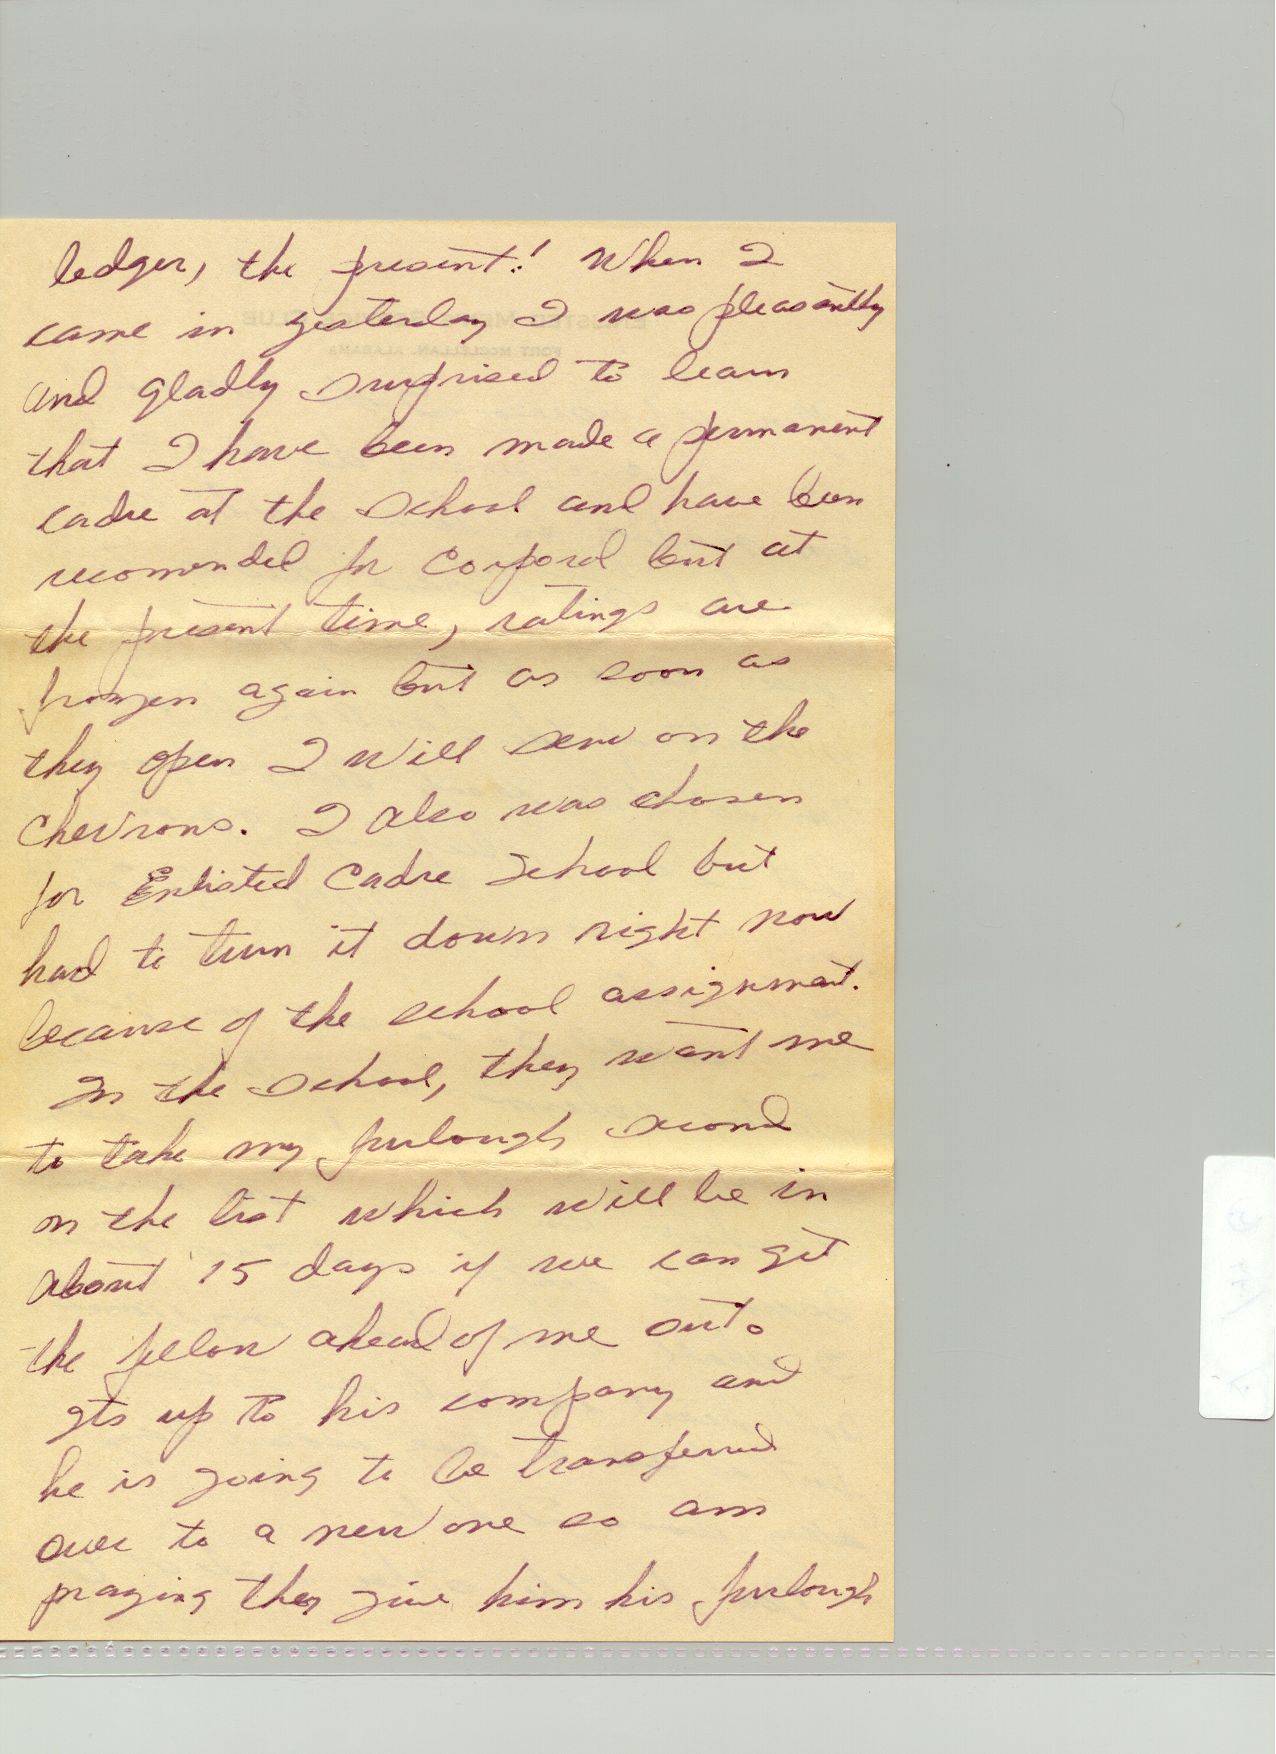 ledger, the present! When I
came in yesterday I was pleasantly
and gladly surprised to learn
that I have been made a permanent
cadre at the school and have been
recomended for Corporal but at
the present time, ratings are
frozen again but as soon as
they open I will sew on the
chevrons. I also was chosen
for Enlisted Cadre School but
had to turn it down right now
because of the school assignment.
In the school, they want me
to take my furlough second
on the list which will be in
about 15 days if we can get
the fellow ahead of me out.
Its up to his company and
he is going to be transferred
over to a new one so am
praying they give him his furlough